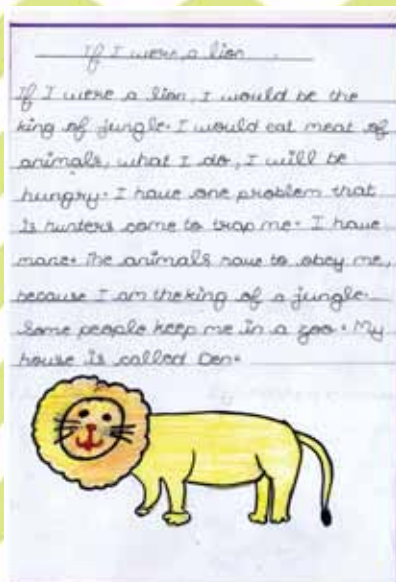 If I were a lion
If I were a lion, I would be the
king of jungle. I would eat meat of
animals, what I do, I will be
hungry. I have one problem that
is hunters come to trap me. I have
mane. The animals have to obey me,
because I am the king of a jungle.
Some people keep me in a zoo. My
house is called Den.